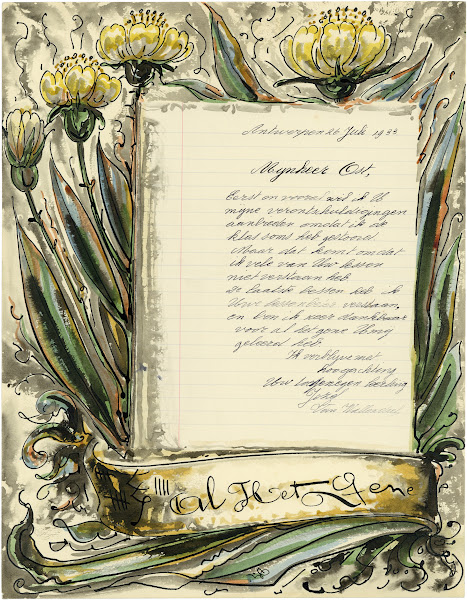 Antwerpen 26 Juli 1933
Mynheer Ost,
Eerst en vooral wil ik U
myne verontschuldigingen
aanbieden omdat ik de
klas soms heb gestoord.
Maar dat komt omdat
ik vele van Uw lessen
niet verstaan heb.
De laatste lessen heb ik
verstaan,
en ben ik zeer dankbaar
voor al het gene U my
geleerd heb.
Ik verblyve met
hoogachting
Uw leerling
Jef
Van
Al Het Gene